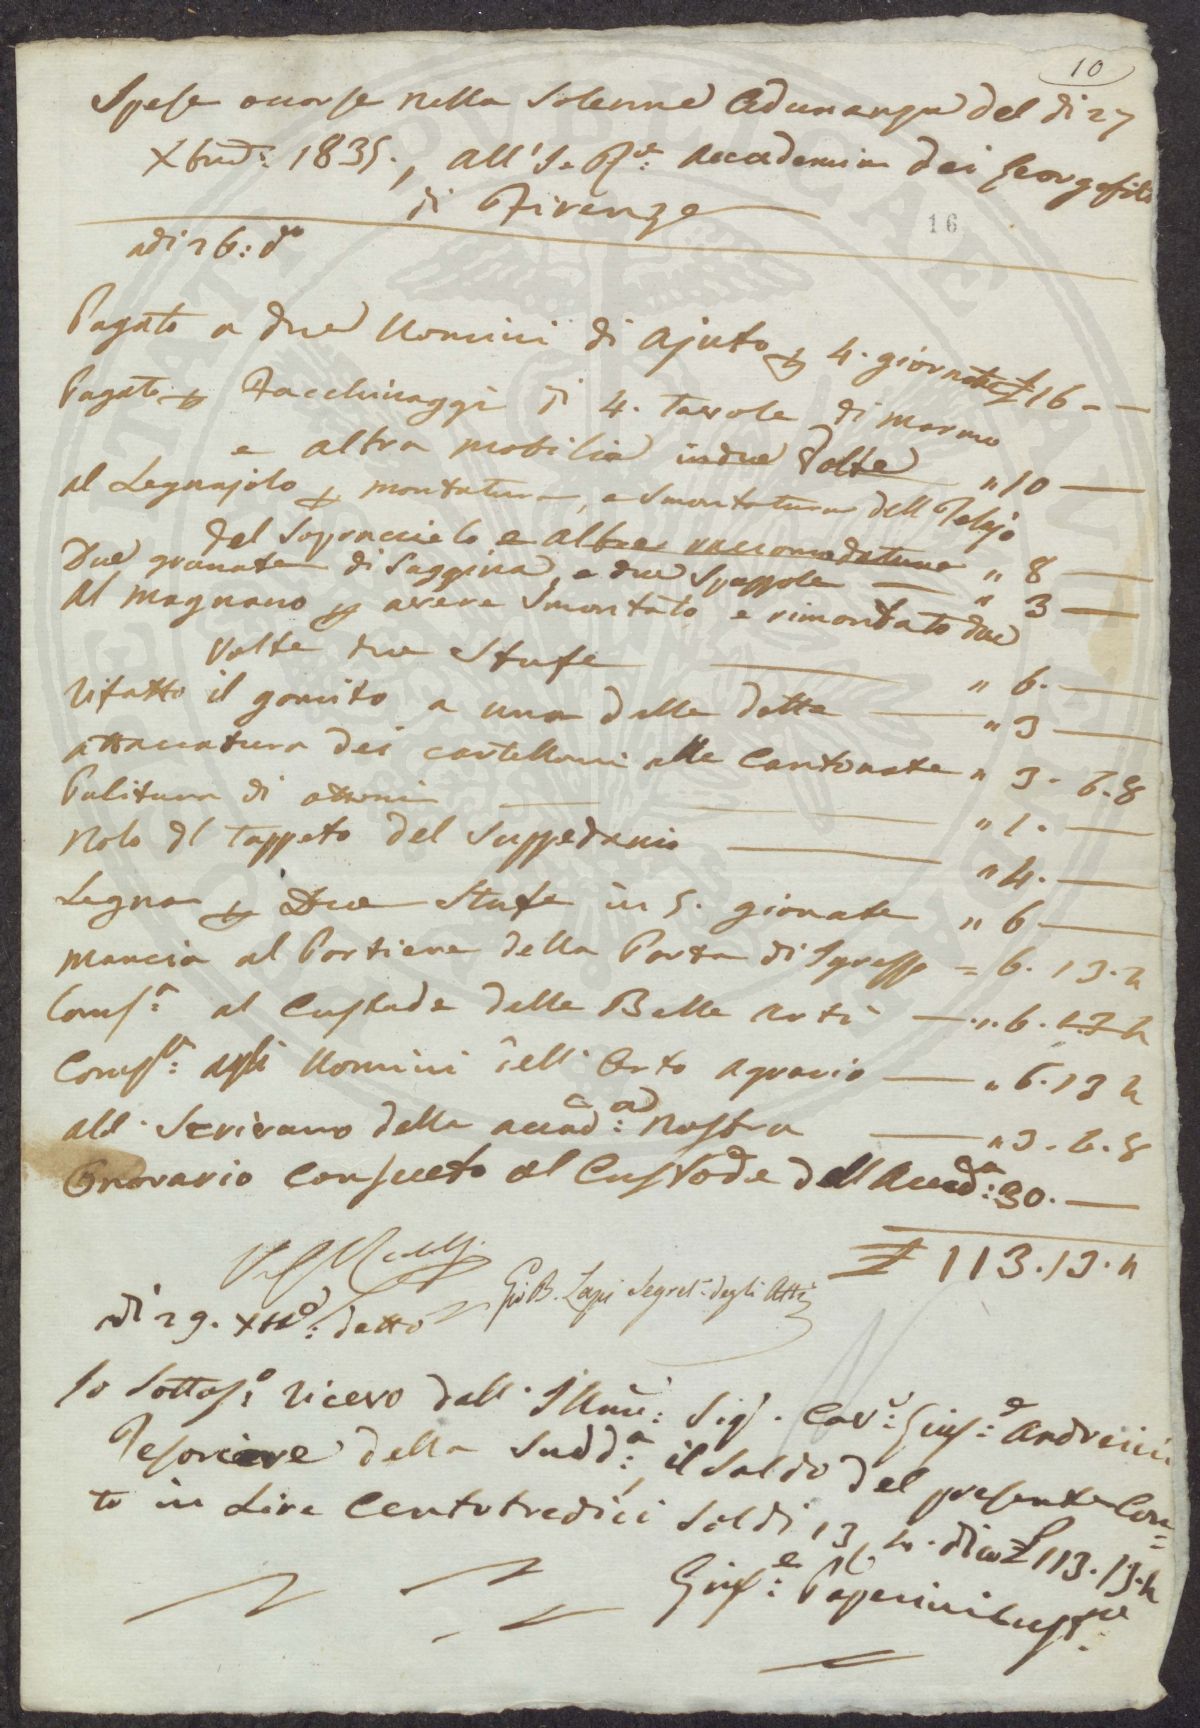 10
Spese occorse nella Solenne Adunanza del dì 27
Xbre: 1835., all'I. e R.e: Accademia dei Georgofili
di Firenze
16
adì 26: do
Pagato a due Uomini di ajuto p 4. giornate £ 16 - -
Pagato p Facchinaggi di 4. Tavole di marmo
e altra mobilia in due Volte " 10 —
al Legnajolo p montatura, e Smontatura dell Telajo
del Sopraccielo e altre raccomodature " 8 —
Due granate di Saggina, e due Spazzole — " 3 —
Al magnano p avere Smontato e rimontato due
Volte due Stufe — " 6. —
rifatto il gomito a una delle dette — " 3 —
attaccatura dei cartelloni alle Cantonate " 3. 6. 8
Pulitura di ottoni — " 1. —
Nolo dl Tappeto del Suppedanio — " 4. —
Legna p Due Stufe in 5. giornate " 6 —
Mancia al Portiere della Porta di Ingresso = 6. 13. 4
Coms.a al Custode delle Belle Arti — " 6. 13 4
Coms.a: agli Uomini dell' Orto agrario — " 6. 13 4
all. Scrivano della accad:a Nostra — " 3. 6. 8
Onorario Consueto al Custode dell Accad:a 30. —
£ 113. 13. 4
Gio B. Lapi Segret.o degli Atti
dì 29. Xbre: detto
Io Sottos.o ricevo dall. Illmo: Sig. Cav.e: Gius:e Andreini
Tesoriere della Sudd:a, il Saldo del presente Con=
to in Lire Centotredici Soldi 13, 4. dico £ 113. 13. 4
Gius:e Papini Cust:e